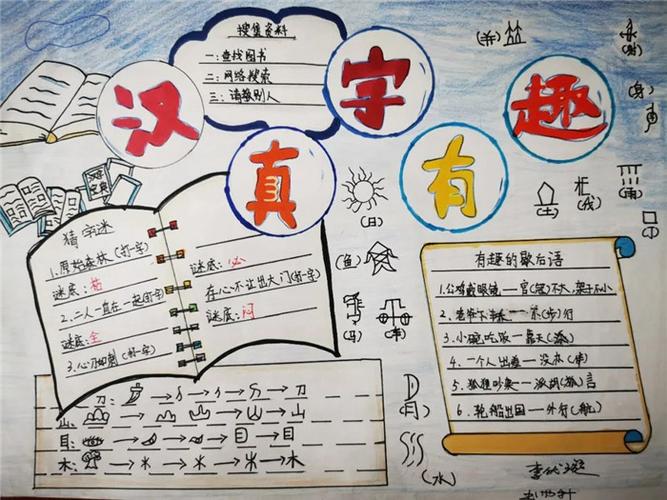 汉字真有趣
搜集资料
一：查找图书
二：网络搜索
三：请教别人
猜字迷
1.原始森林（打一字）
谜底：枯
2.二人一直在一起（打一字）
谜底：全
3.心刀如刺（打一字）
谜底：必
存心不让出大门（打一字）
谜底：闷
刀：
刀
山：
山
目：
目
木：
木
（日）
（鱼）
（月）
（水）
（土）
（戌）
（雨）
（射）
（身）
有趣的歇后语
1.公鸡戴眼镜一官（冠）不大，架子不小
3.小碗吃饭一靠天（添）
4.一个人出差一没办（伴）
5.狐狸吵架一派胡（狐）言
6.轮船出国一外行（航）